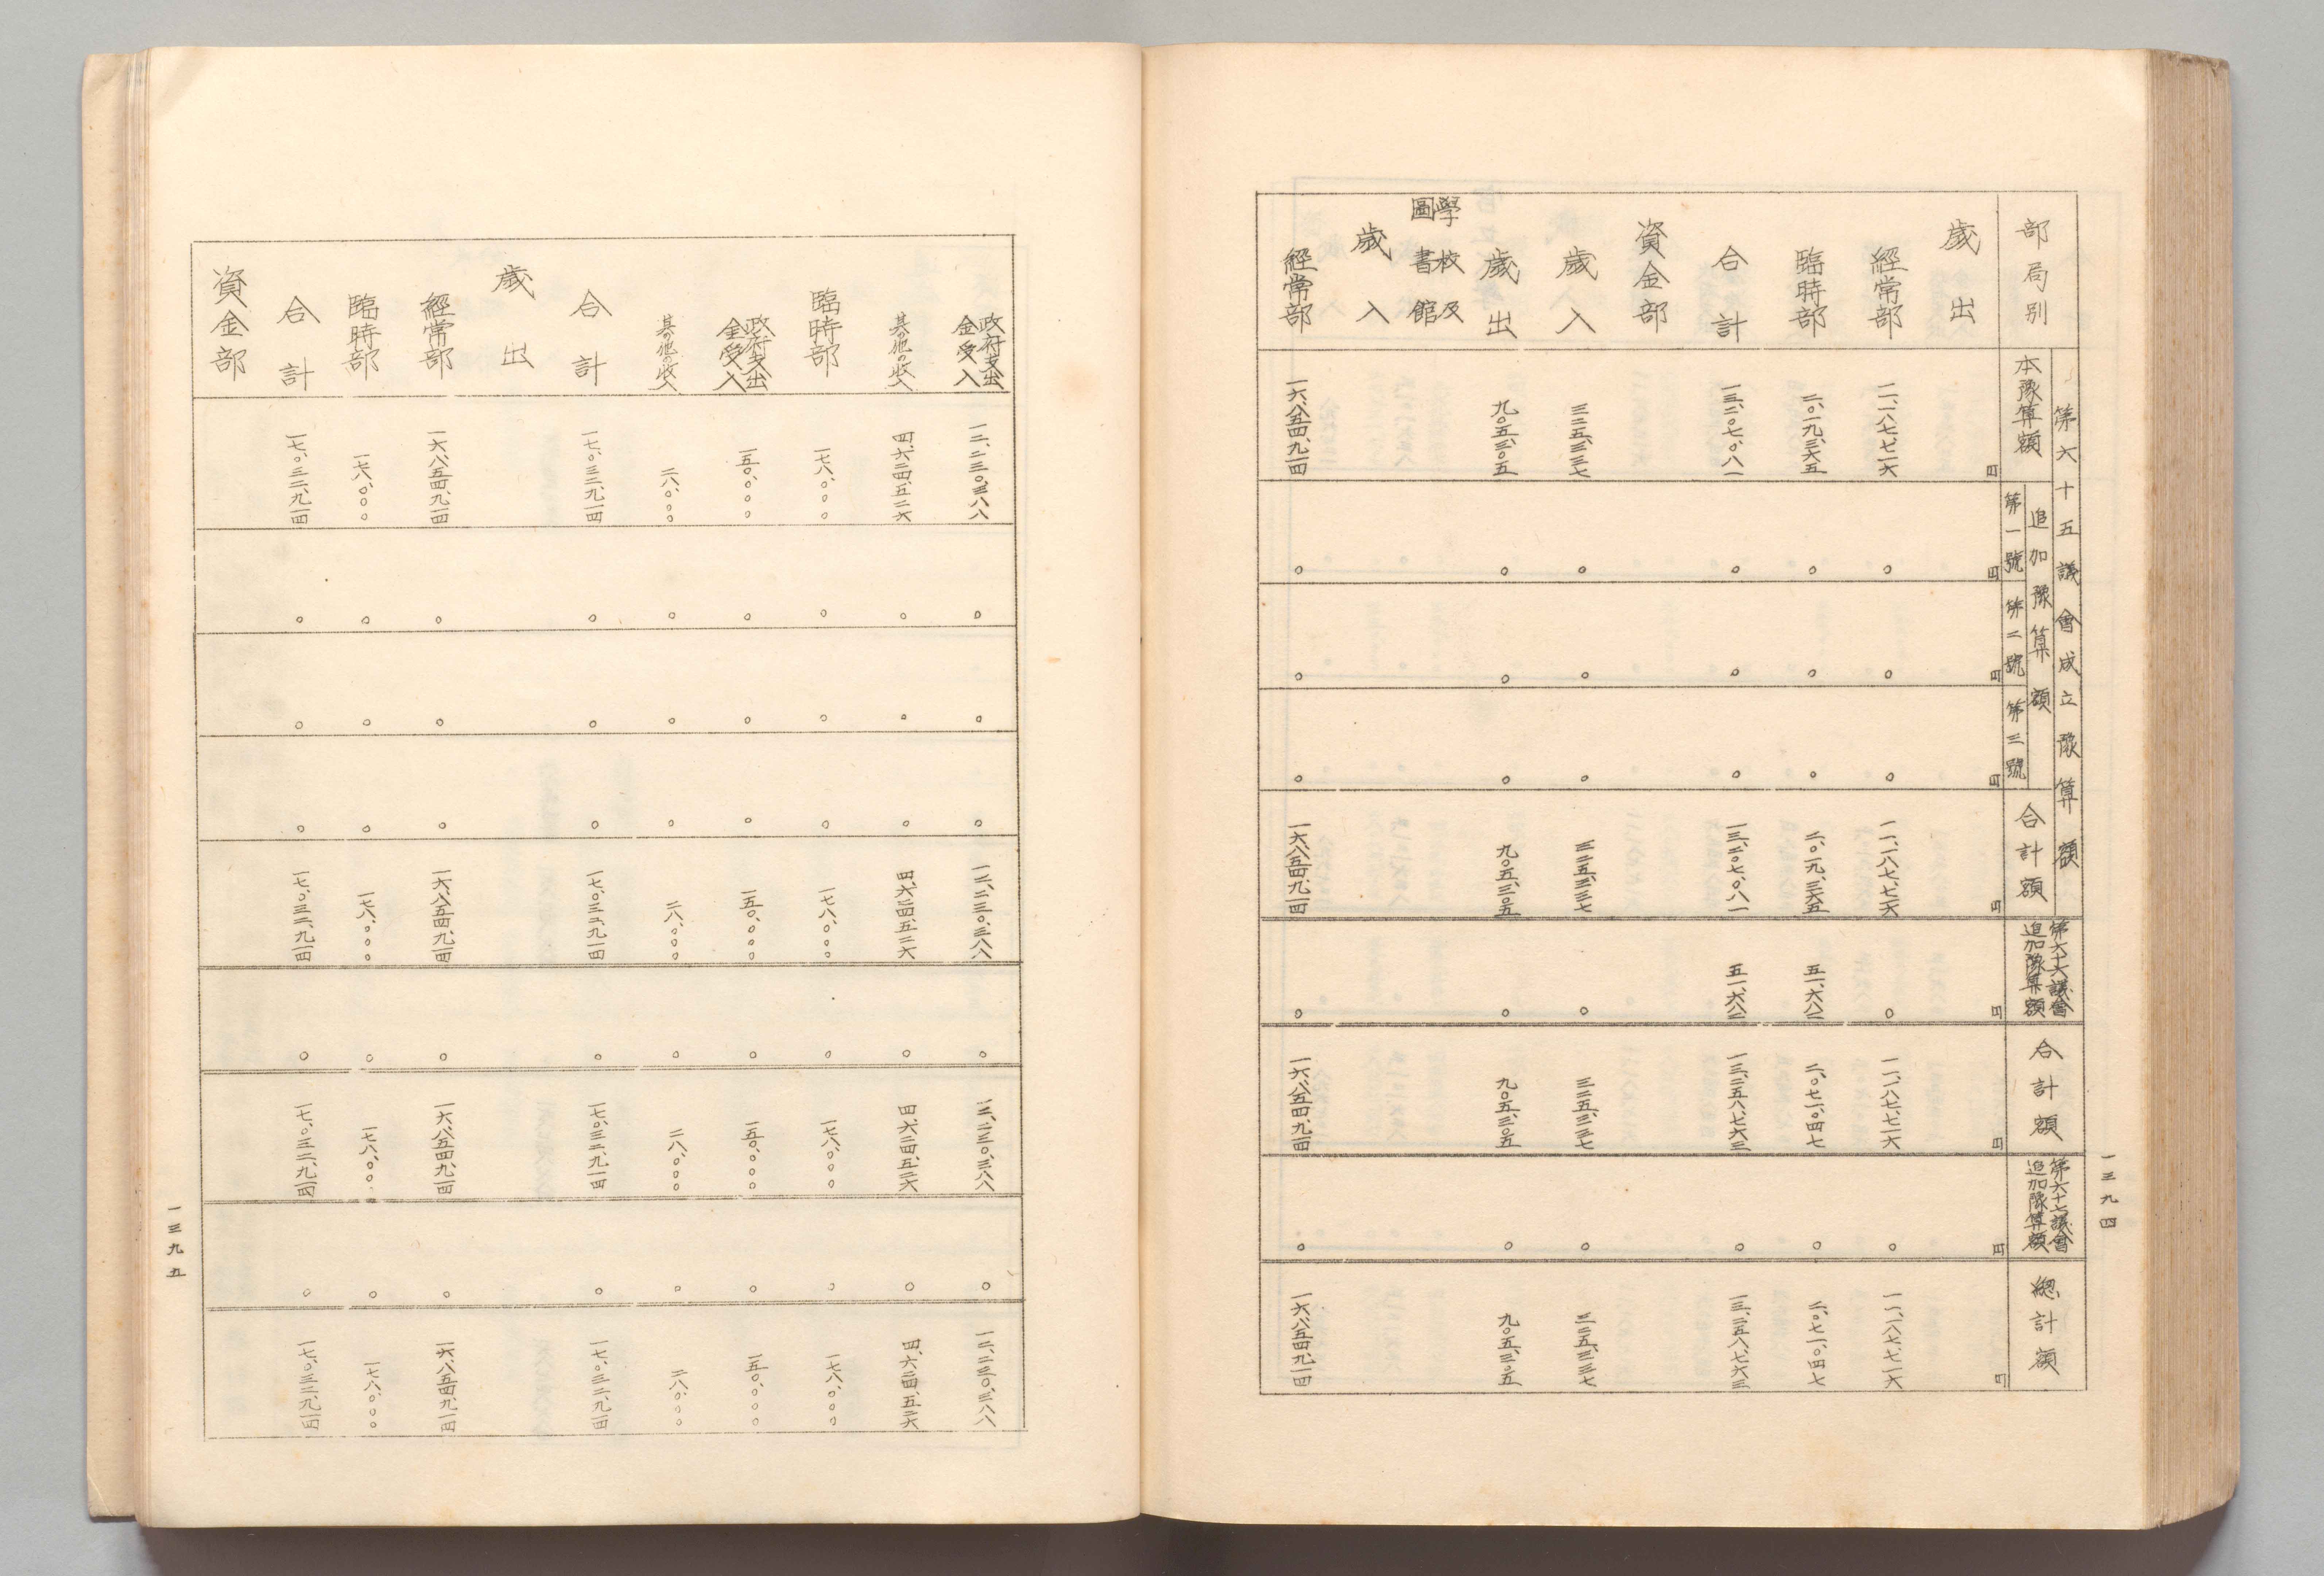 一三九四
部局別
第六十五議會成立豫算額
本豫算額
追加豫算額
第一號 第二號 第三號
合計額
第六十六議會
追加豫算額
合計額
第六十七議會
追加豫算額
總計額
歲出 円 円 円 円 円 円 円 円 円
經常部 一一、一八七、七一六 〇 〇 〇 一一、一八七、七一六 〇 一一、一八七、七一六 〇 一一、一八七、七一六
臨時部 二、〇一九、三六五 〇 〇 〇 二、〇一九、三六五 五一、六八二 二、〇七一、〇四七 〇 二、〇七一、〇四七
合計 一三、二〇七、〇八一 〇 〇 〇 一三、二〇七、〇八一 五一、六八二 一三、二五八、七六三 〇 一三、二五八、七六三
資金部
歲入 三二五、三三七 〇 〇 〇 三二五、三三七 〇 三二五、三三七 〇 三二五、三三七
歲出 九〇五、三〇五 〇 〇 〇 九〇五、三〇五 〇 九〇五、三〇五 〇 九〇五、三〇五
學校及
圖書館
歲入
經常部 一六、八五四、九一四 〇 〇 〇 一六、八五四、九一四 〇 一六、八五四、九一四 〇 一六、八五四、九一四
政府支出
金受入 一二、二三〇、三八八 〇 〇 〇 一二、二三〇、三八八 〇 一二、二三〇、三八八 〇 一二、二三〇、三八八
其の他の收入 四、六二四、五二六 〇 〇 〇 四、六二四、五二六 〇 四、六二四、五二六 〇 四、六二四、五二六
臨時部 一七八、〇〇〇 〇 〇 〇 一七八、〇〇〇 〇 一七八、〇〇〇 〇 一七八、〇〇〇
政府支出
金受入 一五〇、〇〇〇 〇 〇 〇 一五〇、〇〇〇 〇 一五〇、〇〇〇 〇 一五〇、〇〇〇
其の他の收入 二八、〇〇〇 〇 〇 〇 二八、〇〇〇 〇 二八、〇〇〇 〇 二八、〇〇〇
合計 一七、〇三二、九一四 〇 〇 〇 一七、〇三二、九一四 〇 一七、〇三二、九一四 〇 一七、〇三二、九一四
歲出
經常部 一六、八五四、九一四 〇 〇 〇 一六、八五四、九一四 〇 一六、八五四、九一四 〇 一六、八五四、九一四
臨時部 一七八、〇〇〇 〇 〇 〇 一七八、〇〇〇 〇 一七八、〇〇〇 〇 一七八、〇〇〇
合計 一七、〇三二、九一四 〇 〇 〇 一七、〇三二、九一四 〇 一七、〇三二、九一四 〇 一七、〇三二、九一四
資金部
一三九五